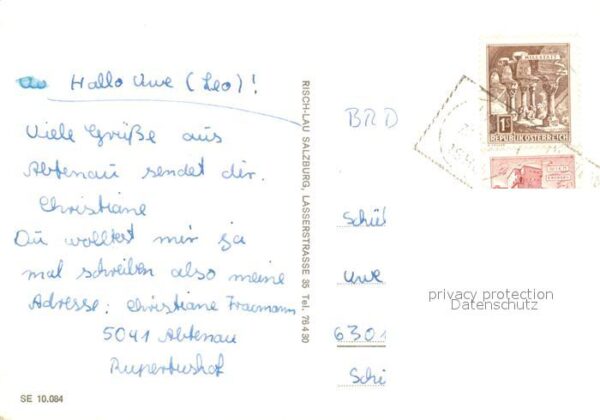 Hallo Uwe (Leo)!
Viele Grüße aus
Abtenau sendet dir.
Christiane
Du wolltest mir ja
mal schreiben also meine
Adresse: Christiane
5041 Abtenau
Rupertushof
SE 10.084
RISCH-LAU SALZBURG, LASSERSTRASSE 35 Tel. 76 4 30
BRD
Schül
Uwe
6301
MILLSTATT
1S
REPUBLIK ÖSTERREICH
privacy protection
Datenschutz